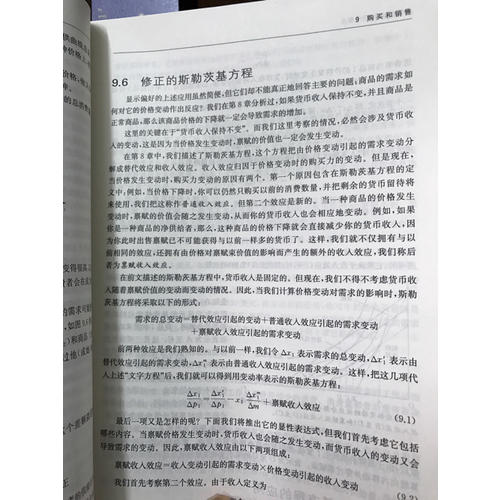 9 购买和销售
9.6 修正的斯勒茨基方程
显示偏好的上述应用虽然简便,但它们却不能真正地回答主要的问题:商品的需求如
何对它的价格变动作出反应?我们在第8章分析过,如果货币收入保持不变,并且商品是
正常商品,那么该商品价格的下降就一定会导致需求的增加。
这里的关键在于“货币收入保持不变”。而我们这里考察的情况,必然会涉及货币收
人的变动,这是因为当价格发生变动时,禀赋的价值也一定会发生变动。
在第8章中,我们描述了斯勒茨基方程,这个方程把由价格变动引起的需求变动分
解成替代效应和收入效应。收入效应归因于价格变动时的购买力的变动。但是现在,
当价格发生变动时,购买力变动的原因有两个。第一个原因包含在斯勒茨基方程的定
义中:例如,当价格下降时,你可以仍然只购买以前的消费数量,并把剩余的货币留待将
来使用,我们把这称作普通收入效应。但第二个效应是新的。当一种商品的价格发生
变动时,禀赋的价值会随之发生变动,从而你的货币收入也会相应地变动。例如,如果
你是一种商品的净供给者,那么,这种商品的价格下降就会直接减少你的货币收入,因
为你此时出售禀赋已不可能获得与以前一样多的货币了。这样,我们就不仅拥有与以
前相同的效应,还拥有由价格对禀赋束价值的影响而产生的额外的收入效应,我们称后
者为禀赋收入效应。
在前文描述的斯勒茨基方程中,货币收入是固定的。但现在,我们不得不考虑货币收
人随着禀赋价值的变动而变动的情况。因此,当我们计算价格变动对需求的影响时,斯勒
茨基方程将采取以下的形式:
需求的总变动=替代效应引起的变动+普通收入效应引起的需求变动
+禀赋收入效应引起的需求变动
前两种效应是我们熟知的。与以前一样,我们令 Δx₁ 表示需求的总变动,Δx₁ˢ 表示由
替代效应引起的需求变动,Δx₁ᵐ 表示由普通收入效应引起的需求变动。这样,把这几项代
人上述“文字方程”后,我们就可以得到用变动率表示的斯勒茨基方程:
Δx₁/Δp₁ = Δx₁ˢ/Δp₁ − x₁ Δx₁ᵐ/Δm + 禀赋收入效应 (9.1)
最后一项又是怎样的呢?下面我们将推出它的显性表达式,但我们首先考虑它包括
哪些内容。当禀赋价格发生变动时,货币收入也会随之发生变动,而货币收入的变动又会
导致需求的变动。因此,禀赋收入效应由以下两项组成:
禀赋收入效应=收入变动引起的需求变动×价格变动引起的收入变动 (9.2)
我们首先考察第二个效应。由于收入定义为